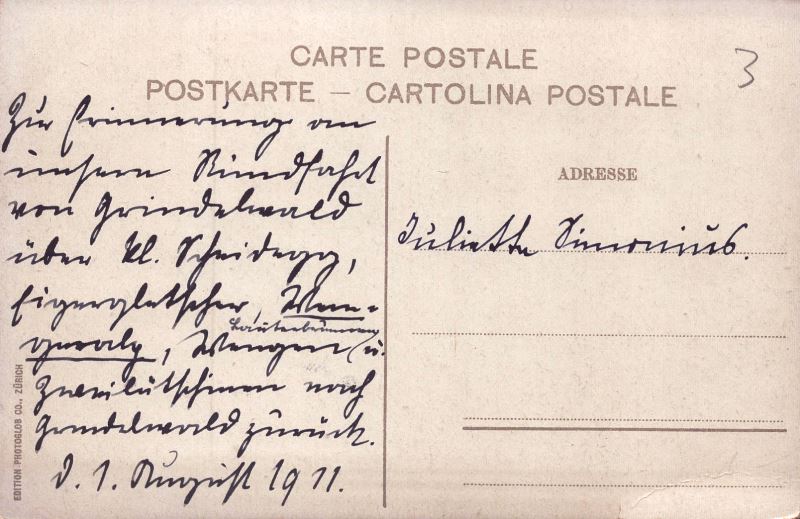 CARTE POSTALE
POSTKARTE – CARTOLINA POSTALE
3
Zur Erinnerung an
unsern Rundfahrt
von Grindelwald
über kl. Scheidegg,
Eigergletscher, Wen-
geralp, Wengen, Lauterbrunnen u.
Zweilütschinen nach
Grindelwald zurück.
d. 1. August 1911.
ADRESSE
Juliette Simonius.
EDITION PHOTOGLOB CO., ZÜRICH